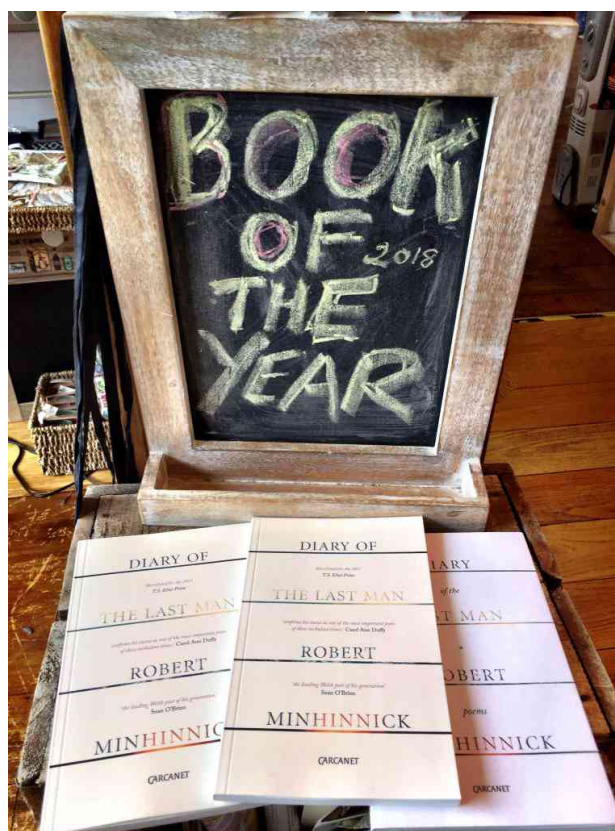 BOOK
OF 2018
THE
YEAR
DIARY OF
Shortlisted for the 2017
T.S. Eliot Prize
THE LAST MAN
'confirms his status as one of the most important poets
of these turbulent times.' Carol Ann Duffy
ROBERT
'the leading Welsh poet of his generation'
Sean O'Brien
MINHINNIC
CARCANET
DIARY OF
Shortlisted for the 2017
T.S. Eliot Prize
THE LAST MAN
'confirms his status as one of the most important poets
of these turbulent times.' Carol Ann Duffy
ROBERT
'the leading Welsh poet of his generation'
Sean O'Brien
MINHINNICK
CARCANET
IARY
of the
ST MAN
OBERT
poems
HINNICK
CARCANET